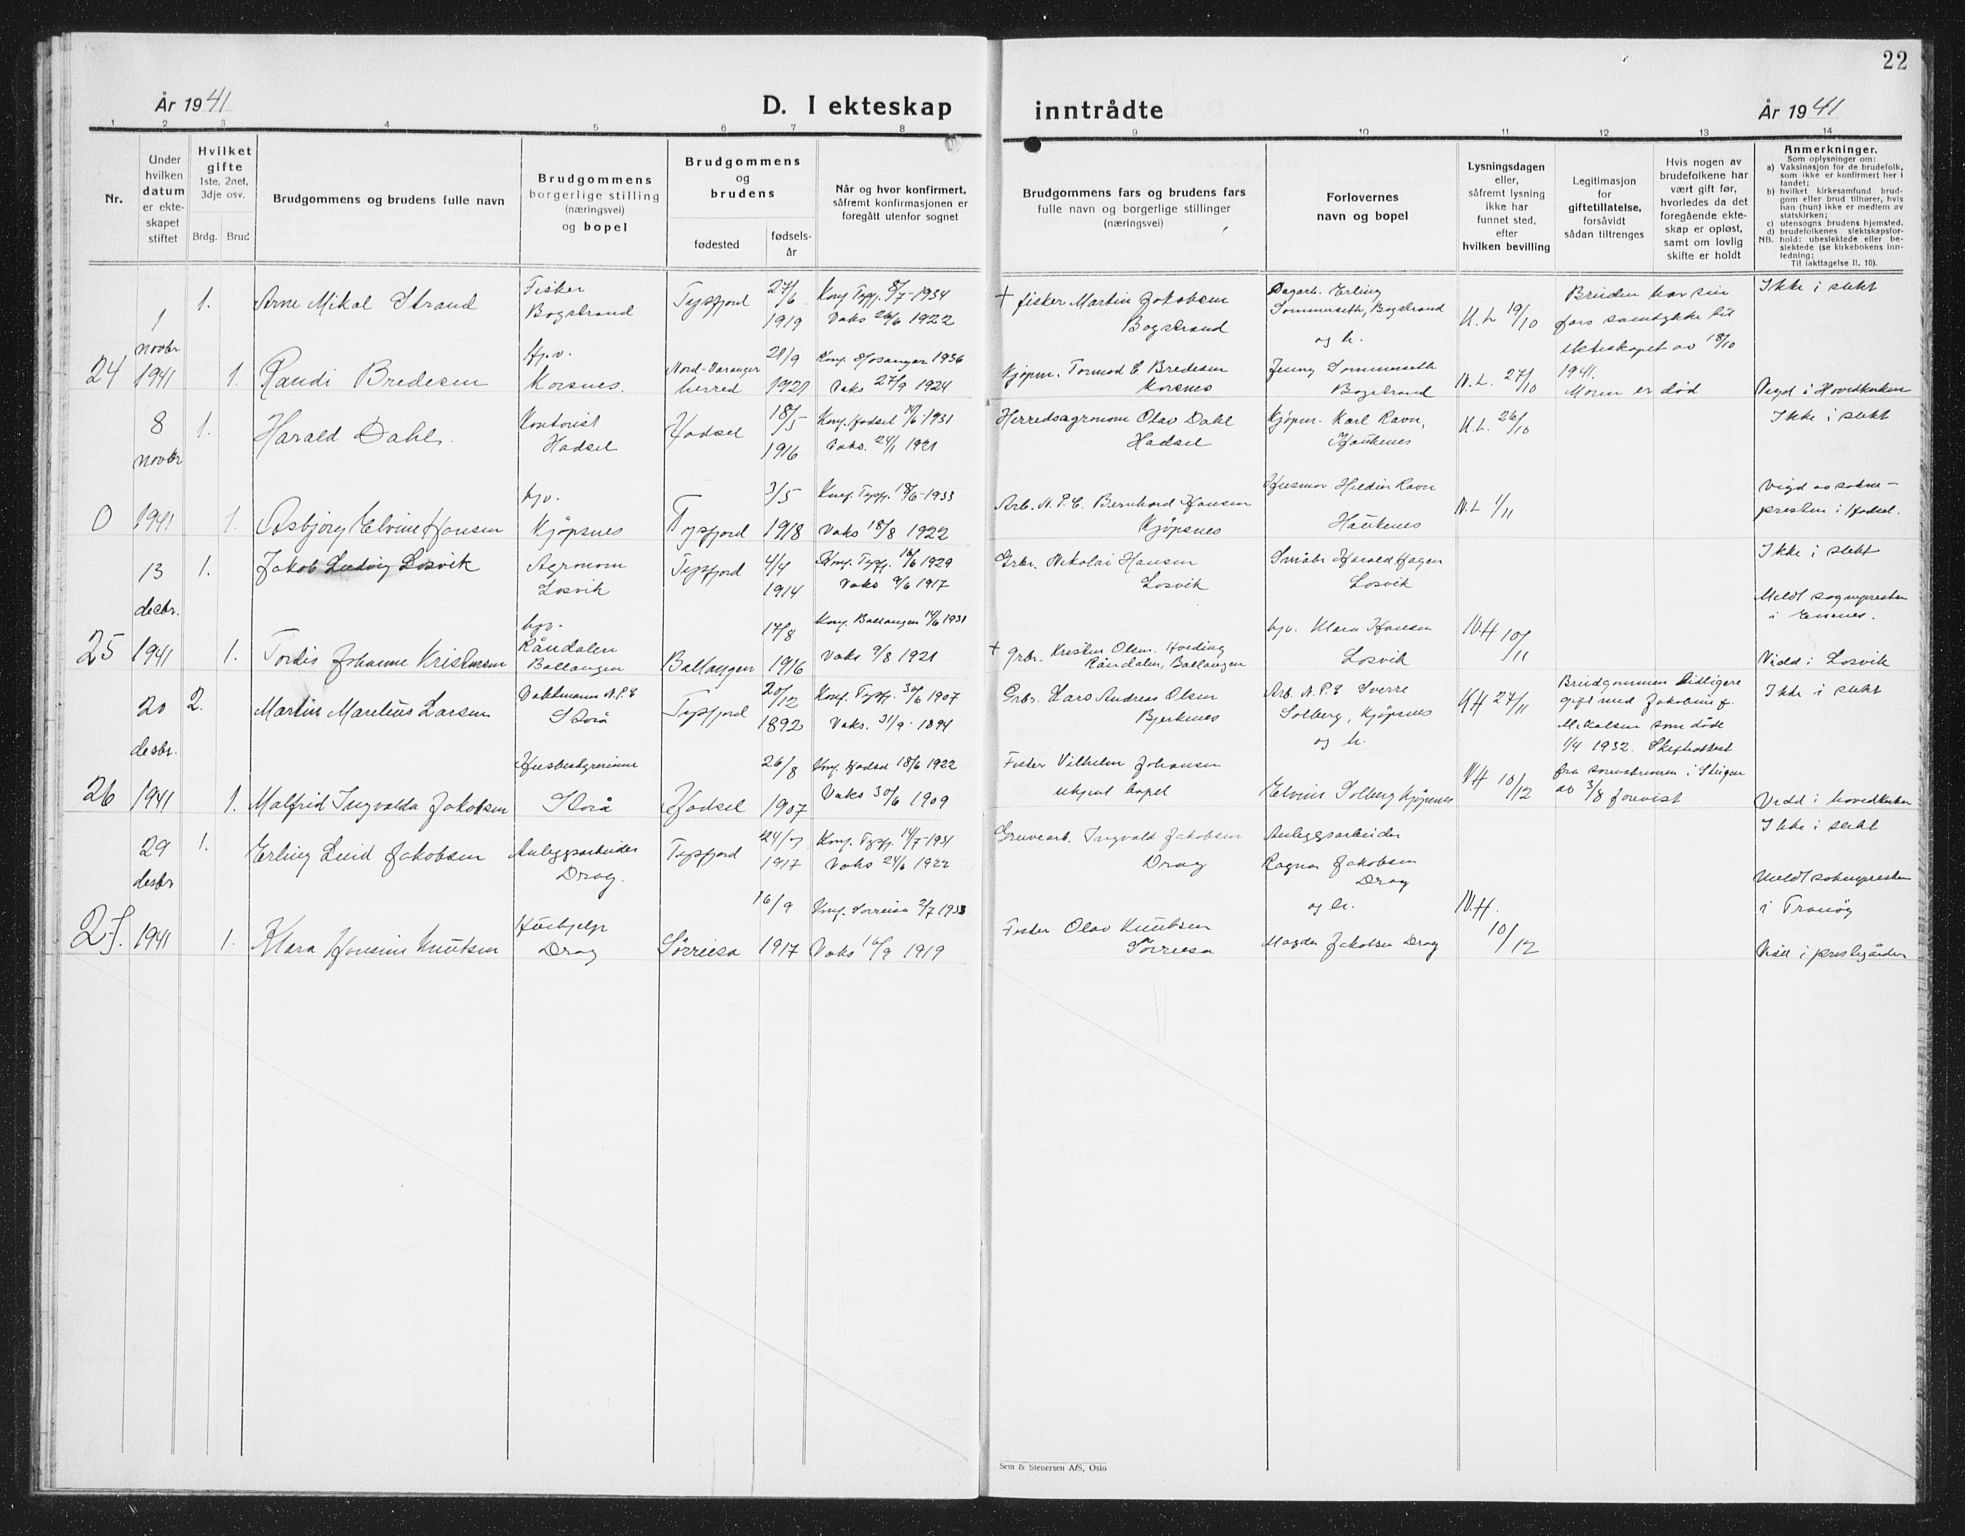 22
År 1941
D. I ekteskap inntrådte
År 1941
1 2 3 4 5 6 7 8 9 10 11 12 13 14
Nr.
Under hvilken datum er ekteskapet stiftet
Hvilket gifte
1ste, 2net, 3dje osv.
Brdg. Brud
Brudgommens og brudens fulle navn
Brudgommens borgerlige stilling (næringsvei) og bopel
Brudgommens og brudens
fødested
fødselsår
Når og hvor konfirmert, såfremt konfirmasjonen er foregått utenfor sognet
Brudgommens fars og brudens fars fulle navn og borgerlige stillinger (næringsvei)
Forlovernes navn og bopel
Lysningsdagen eller, såfremt lysning ikke har funnet sted, efter hvilken bevilling
Legitimasjon for giftetillatelse, forsåvidt sådan tiltrenges
Hvis nogen av brudefolkene har vært gift før, hvorledes da det foregående ekteskap er opløst, samt om lovlig skifte er holdt
Anmerkninger.
Som oplysninger om:
a) Vaksinasjon for de brudefolk, som ikke er konfirmert her i landet;
b) hvilket kirkesamfund brudgom eller brud tilhører, hvis han (hun) ikke er medlem av statskirken;
c) utensogns brudens hjemsted.
d) brudefolkenes slektskapsforhold: ubeslektede eller beslektede (se kirkebokens innledning;
NB.
Til iakttagelse II, 10).
1 novbr 1941
24
1. Arne Mikal Strand
Fisker Bogstrand
Tysfjord
27/6 1919
Konf Tysf. 8/7-1934
Vaks 26/6 1922
+ fisker Martin Jakobsen Bogstrand
Dagarb. Erling Sommerseth, Bogstrand og h.
K.L 19/10
Bruden har sin fars samtykke til ekteskapet av 18/10 1941.
Moren er død
Ikke i slekt
1. Randi Bredesen
Hjv. Korsnes.
Nord-Varanger herred
1921
Vaks 27/9 1924
Kjøpm. Tormod E. Bredesen Korsnes
Jenny Sommerseth Bogstrand
N.L. 27/10
Vigd i Hovedkirken
8 novbr 1941
0
1. Harald Dahl.
Kontorist Hadsel
Hadsel
18/5 1916
Konf. Hadsel 1931
Vaks. 24/1 1921
Herredsagronom Olav Dahl Hadsel
Kjøpm. Karl Ravn, Haukenes
K.L. 26/10
Ikke i slekt
1. Asbjørg Elvine Hansen
hjv. Kjøpsnes
Tysfjord
3/5 1918
Konf. Tysf. 18/6-1933
Vaks 18/8 1922
Arb. N.P.C. Bernhard Hansen Kjøpsnes
Husmor Hildur Ravn Haukenes
N.L 1/11
Vigd av soknepresten i Hadsel.
13 desbr. 1941
25
1. Jakob Ludvig Losvik
Agronom Losvik
Tysfjord
4/4 1914
Konf. Tysf. 16/6 1929
Vaks 9/6 1917
Grbr. Nikolai Hansen Losvik
Småbr Harald Hagen Losvik
Ikke i slekt
Meldt sognepresten i Evenes.
1. Tordis Johanne Kristensen
hjv. Råndalen Ballangen
Ballangen
17/8 1916
Konf. Ballangen 14/6 1931
Vaks 9/8 1921
+ grbr. Kristen Olsen Råndalen, Ballangen
hjv. Klara Hansen Losvik
N.H 10/11
Vidd i Losvik
20 desbr. 1941
26
2. Martin Marelius Larsen
Vaktmann N.P.C Storå
Tysfjord
20/12 1892
Konf. Tysf. 30/6 1907
Vaks. 31/9 1894
Grbr. Lars Andreas Olsen Bjerknes
Arb. N.P.C Sverre Solberg, Kjøpsnes og h.
K.H 27/11
Brudgommen tidligere gift med Jakobine f. Mikalsen som døde 1/4 1932. Skifteattest
fra sorenskriveren i Steigen av 3/8 forevist
Ikke i slekt
1. Malfrid Ingvalda Jakobsen
Husbestyrerinne Storå
Hadsel
26/8 1907
Konf. Hadsel 18/6 1922
Vaks 30/6 1909
Fisker Vilhelm Johansen ukjent bopel
Elvine Solberg Kjøpsnes
N.H 10/12
Vidd i hovedkirken
29 desbr 1941
27.
1. Erling Luid Jakobsen
Anleggsarbeider Drag.
Tysfjord
24/7 1917
Konf. Tysf. 14/7-1931
Vaks 24/6 1922
Gruvearb. Ingvald Jakobsen Drag
Anleggsarbeider Ragnar Jakobsen Drag og h.
Ikke i slekt
Meldt soknepresten i Tranøy
1. Klara Hansine Knutsen
Hushjelp Drag
Sørreisa
16/9 1917
Konf. Sørreisa 2/7 1933
Vaks 16/9 1919
Fisker Olav Knutsen Sørreisa
Magda Jakobsen Drag
N.H. 10/12
Vidd i prestegården
Sem & Stenersen A/S, Oslo